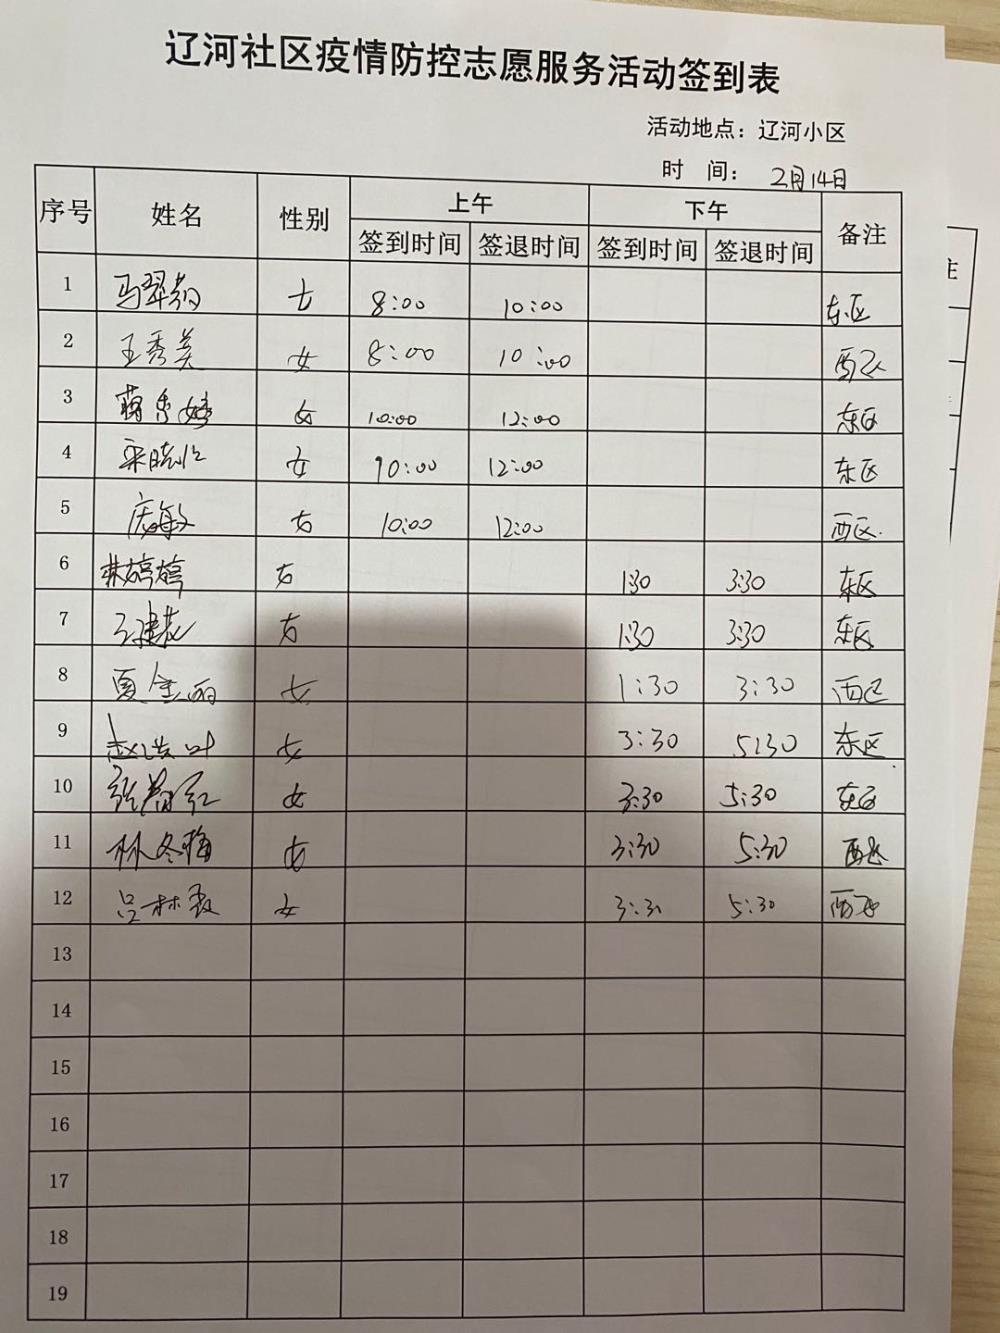 辽河社区疫情防控志愿服务活动签到表
活动地点：辽河小区
时 间： 2月14日
序号 姓名 性别 上午 下午 备注
签到时间 签退时间 签到时间 签退时间
1 马翠菊 女 8:00 10:00 东区
2 王秀美 女 8:00 10:00 西区
3 女 10:00 12:00 东区
4 女 10:00 12:00 东区
5 女 10:00 12:00 西区
6 林婷婷 女 1:30 3:30 东区
7 女 1:30 3:30 东区
8 夏金丽 女 1:30 3:30 西区
9 女 3:30 5:30 东区
10 张春红 女 3:30 5:30 东区
11 林冬梅 女 3:30 5:30 西区
12 女 3:30 5:30 西区
13
14
15
16
17
18
19
注